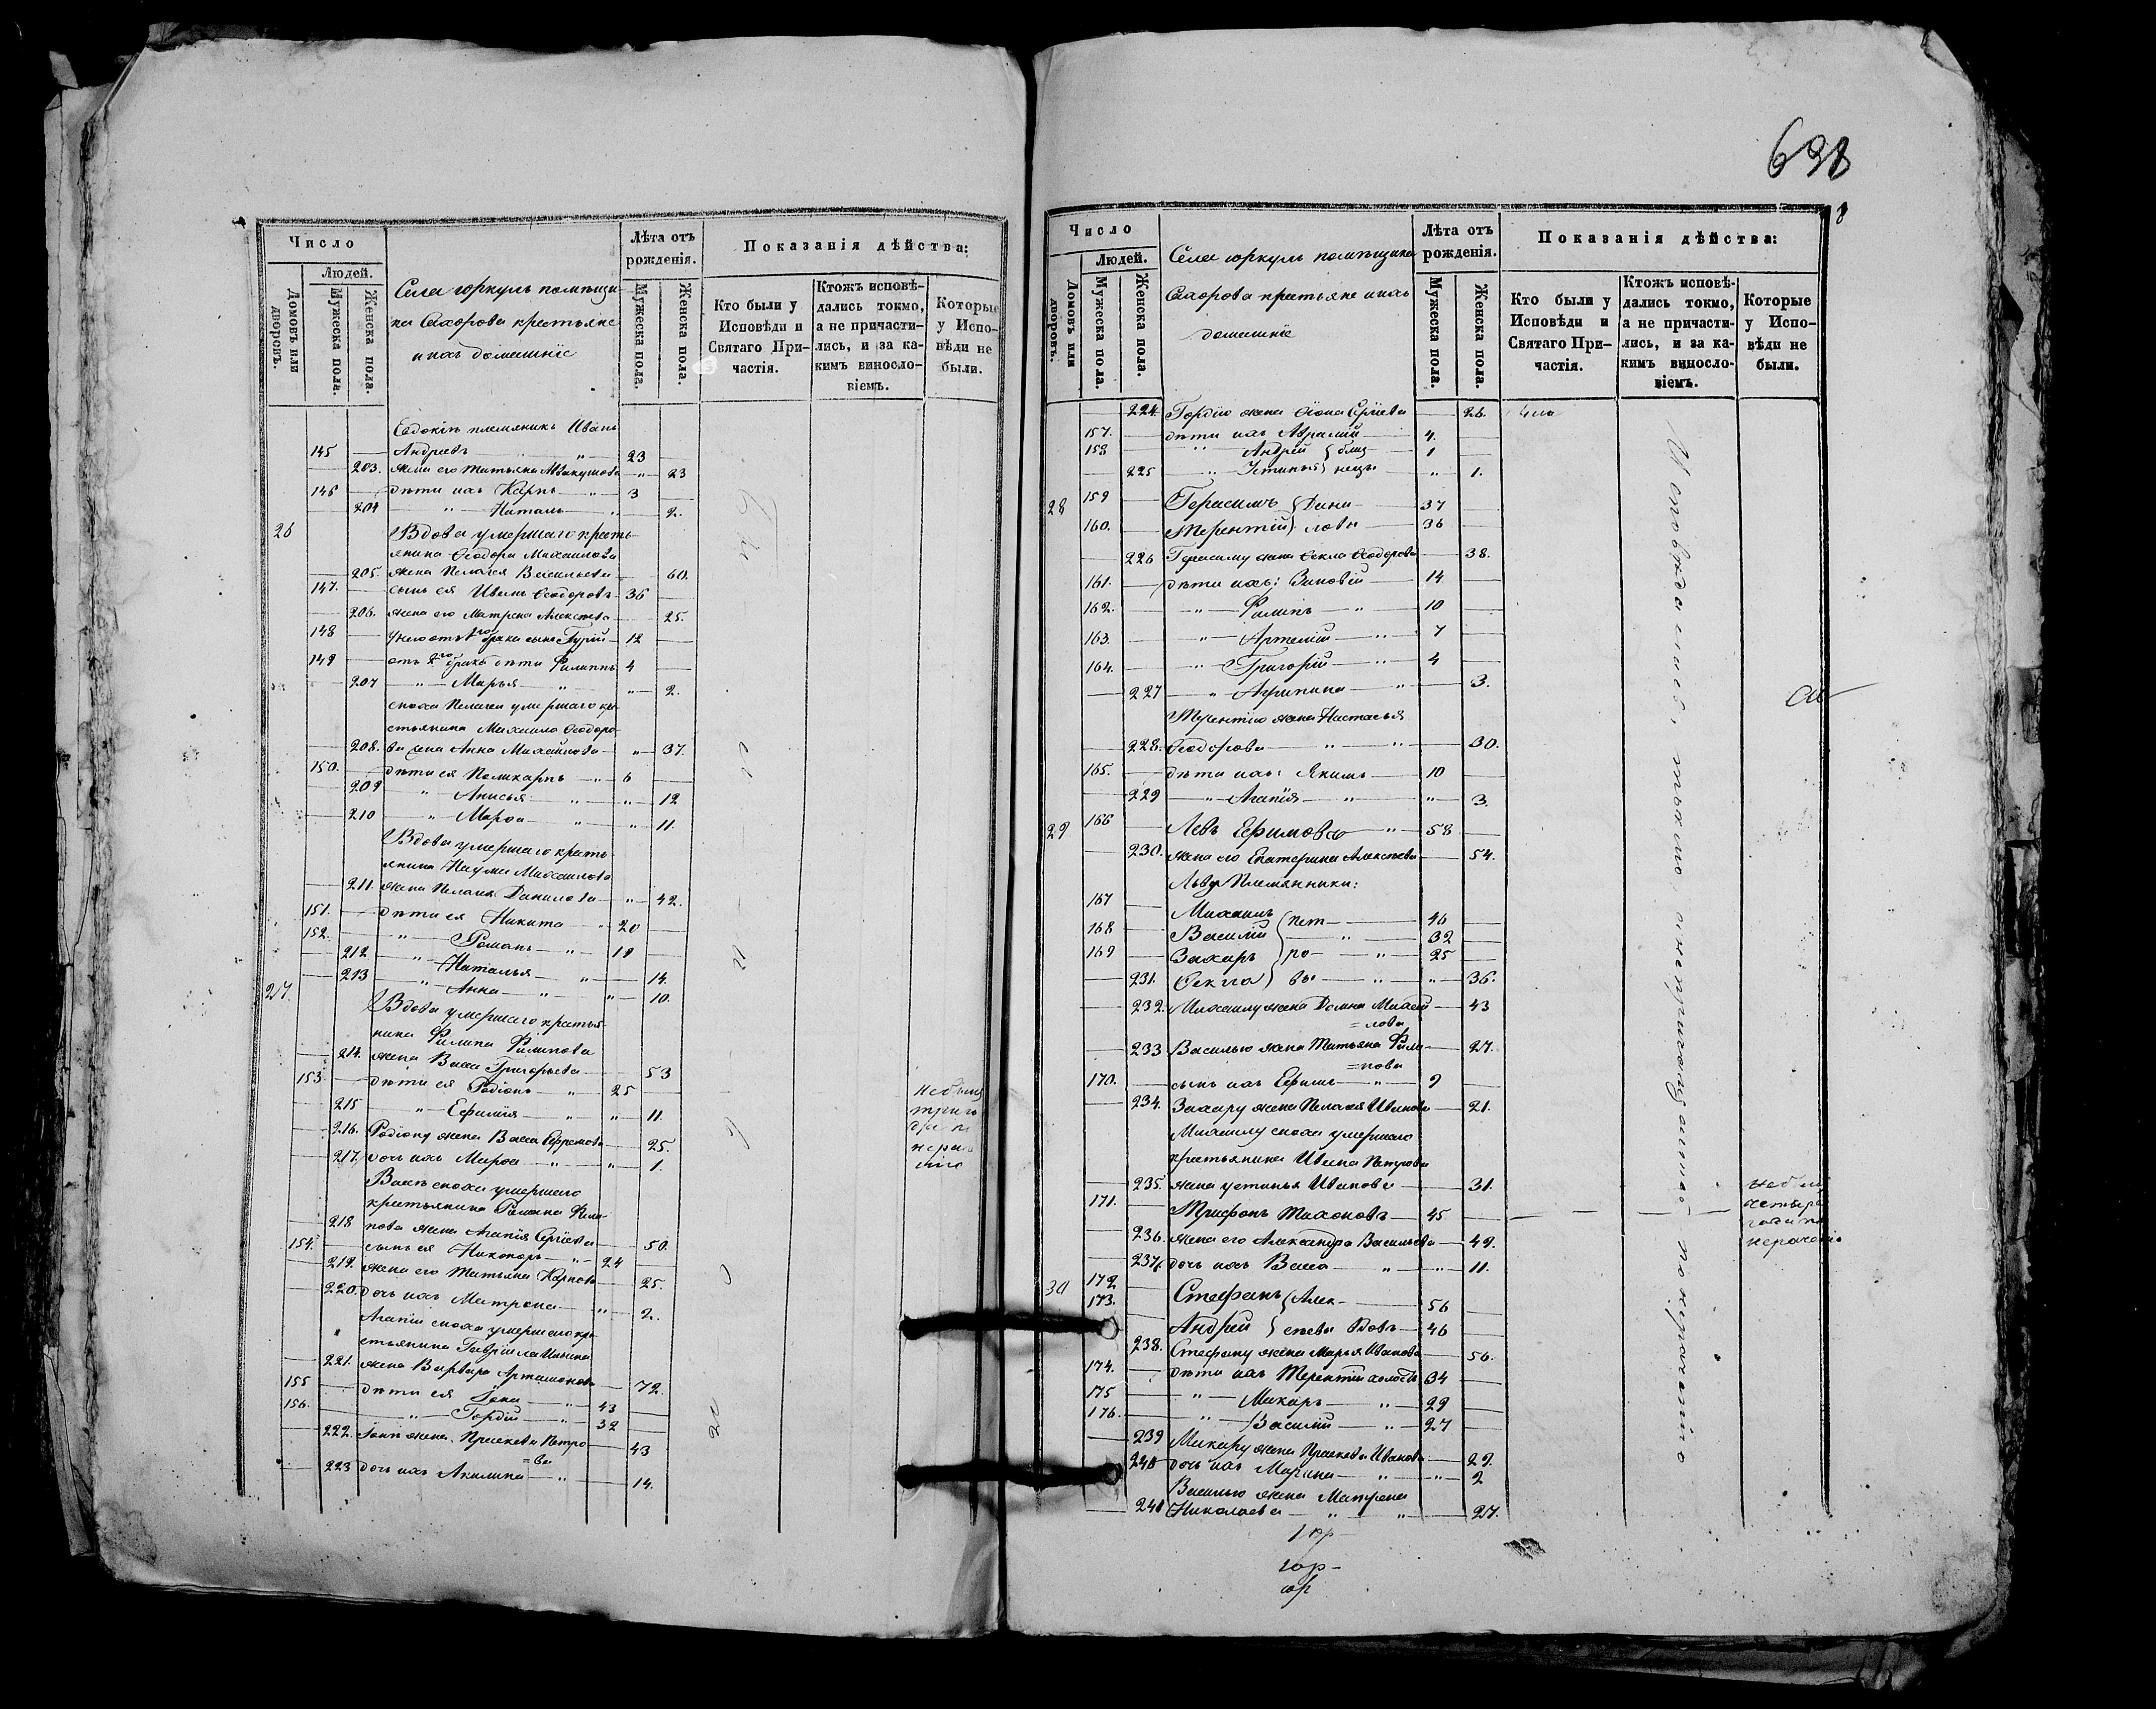 Число
Людей.
Домовъ или дворовъ.
Мужеска пола.
Женска пола.
Села юркуль помѣщи
ка Сахорова крестьяне
и ихъ домашнiе
Лѣта отъ рожденія.
Мужеска пола.
Женска пола.
Показанія дѣйства:
Кто были у Исповѣди и Святаго Причастія.
Ктожъ исповѣдались токмо, а не причастились, и за какимъ винословіемъ.
Которые у Исповѣди не были.
Евдокіи племяникъ Иванъ
145 Андреевъ 23
203. жена его Татьяна Аввакумова 23
146 дѣти ихъ Карпъ 3
204 Наталья 2.
26 Вдова умершаго кресть
янина Ѳеодора Михаилова
205. жена Пелагея Васильева 60.
147. сынъ ея Иванъ Ѳеодоровъ 36
206. жена его Матрена Алексеева 25.
148 у него отъ 1го брака сынъ Гурій 12
149 отъ 2го брака дѣти Филиппъ 4
207 Марья 2.
сноха Пелагеи умершаго кре
стьянина Михаила Ѳеодоро
208. ва жена Анна Михайлова 37.
150. дѣти ея Поликарпъ 6
209 Анисья 12
210 Марѳа 11.
Вдова умершаго кресть
янина Наума Михаилова
211. жена Пелагея Данилова 42.
151. дѣти ея Никита 20
152. Романъ 19
212 Наталья 14.
213 Анна 10.
27. Вдова умершаго крестья
нина Филипа Филипова
214. жена Васса Григорьева 53
153 дѣти ея Родіонъ 25
215 Ефимія 11.
216. Родіону жена Васса Ефремова 25.
217. дочь ихъ Марѳа 1.
Вассѣ сноха умершаго
крестьянина Романа Фили
218 пова жена Агапія Сергіева 50.
154. сынъ ея Никаноръ 24
219. жена его Татьяна Карпова 25.
220. дочь ихъ Матрена 2.
Агапіи сноха умершаго кре
стьянина Гавріила
221. жена Варвара Артамонова 72.
155 дѣти ея Іона 43
156. Гордій 32
222. Іонѣ жена Праскева Петро 43
=ва
223 дочь ихъ Акилина 14.
638
Число
Людей.
Домовъ или дворовъ.
Мужеска пола.
Женска пола.
Села юркуль помѣщика
Сахорова крестьяне и ихъ
домашнiе
Лѣта отъ рожденія.
Мужеска пола.
Женска пола.
Показанія дѣйства:
Кто были у Исповѣди и Святаго Причастія.
Ктожъ исповѣдались токмо, а не причастились, и за какимъ винословіемъ.
Которые у Исповѣди не были.
224. Гордію жена Ѳіона Сергіева 26.
157. дѣти ихъ Аврамій 4.
158 Андрей } близ 1
225 Устинья } нецы 1.
28 159 Герасимъ } Дани 37
160. Терентій } ловы 36
226 Герасиму жена Ѳекла Ѳеодорова 38.
161. дѣти ихъ: Зиновій 14
162. Филипъ 10
163. Артемій 7
164. Григорій 4
227 Агрипина 3.
Терентію жена Настасья
228. Ѳеодорова 30.
165. дѣти ихъ: Якимъ 10
229 Агапія 3.
29 166 Левъ Ефимовъ 58
230. жена его Екатерина Алексеева 54.
Льву Племянники:
167 Михаилъ } Пет 46
168 Василій 32
169 Захаръ } ро 25
231. Ѳекла } вы 36.
232. Михаилу жена Домна Михай 43
=лова
233 Василью жена Татьяна Фили 27.
=пова
170. сынъ ихъ Ефимъ 9
234. Захару жена Пелагея Иванова 21.
Михаилу сноха умершаго
крестьянина Ивана Петрова
235. жена Устинья Иванова 31.
171. Трифонъ Тихоновъ 45
236. жена его Александра Васильева 42.
237. дочь ихъ Васса 11.
30 172 Стефанъ } Алек 56
173. Андрей } сѣевы Вдовъ 46
238. Стефану жена Марья Иванова 56.
174. дѣти ихъ Терентій холостъ 34
175 Макаръ 29
176. Василій 27
239 Макару жена Праскева Иванова 22.
240 дочь ихъ Марина 2
Василью жена Матрена
241 Николаева 27.
Исповѣдались, токмо, а не причащались по нераченію
юр
юр